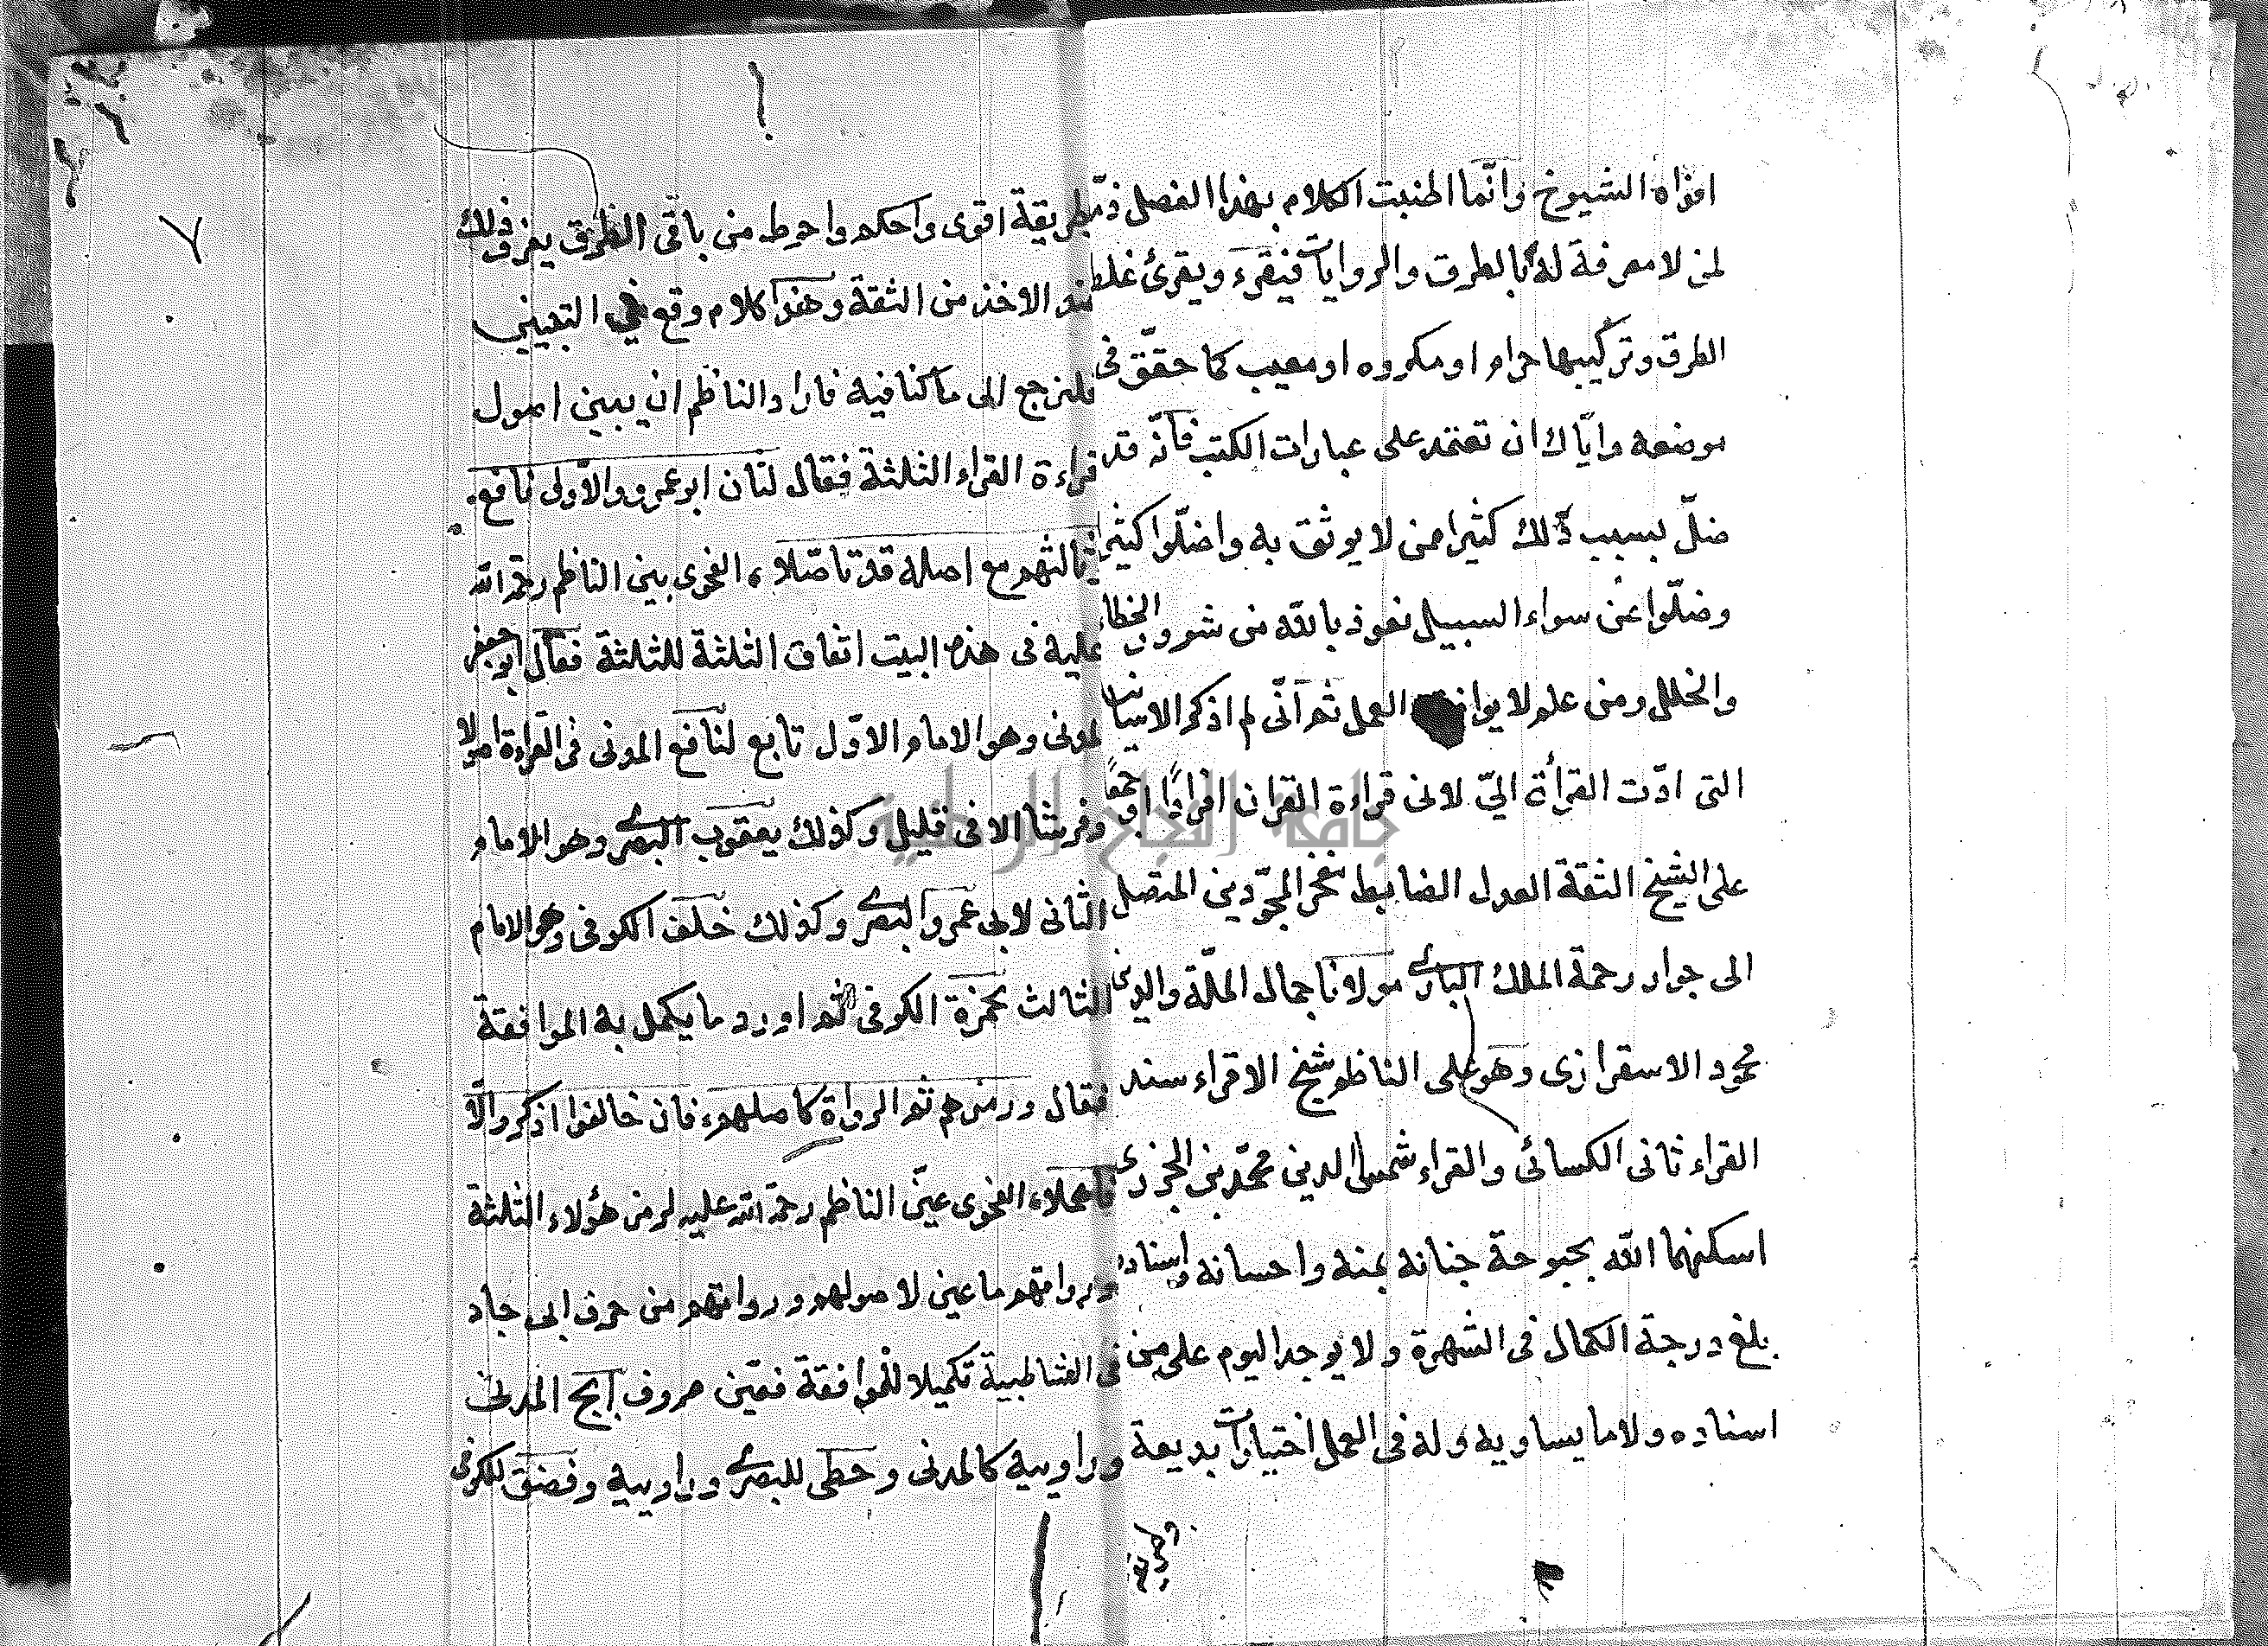 افواه الشيوخ وانّما اطنبت الكلام بهذا الفصل ذمّا
لمن لا معرفة له بالطرق والروايات فيقرء ويقرئ غلط
الطرق وتركيبها حرام او مكروه او معيب كما حقّق فى
موضعه وايّاك ان تعتمد على عبارات الكتب فانّه قد
ضلّ بسبب ذلك كثيرا ممن لا يوثق به واضلّوا كثيرا
وضلّوا عن سواء السبيل نعوذ بالله من شرور الخطاء
والخلل ومن علم لا العمل ثم انّى لم اذكر الاسانيد
التى ادّت القرأة الىّ لانى قراءة القران افرادًا او جمعًا
على الشيخ الثقة العدل الضابط فخر المجوّدين المتصل
الى جوار رحمة الملك البارى مولانا جمال الملّة والدين
محمود الاسفرازى وهو على الناظم شيخ الاقراء سند
القراء ثانى الكسائى والقراء شمس الدين محمّد بن الجزرى
اسكنهما الله بحبوحة جنانه بمنه واحسانه واسناده
بلغ درجة الكمال فى الشهرة ولا يوجد اليوم على من
اسناده ولا ما يساويه وله فى العمل اختيارات بديعة
وطريقه
٧
طريقة اقوى واحكم واحوط من باقى الطرق يعرف ذلك
الاخذ من الثقة وهذا كلام وقع فى التبيين
فلنرجع الى ما كنا فيه فاراد الناظم ان يبين اصول
قراءة القراء الثلثة فقال لثان ابو عمرو والاولى نافع
ثالثهم مع اصله قد تاصّلا ه الفحوى بين الناظم رحمة الله
عليه فى هذه البيت اتفاق الثلثة للثلثة فقال ابو جعفر
المدنى وهو الامام الاوّل تابع لنافع المدنى فى القراءة اصولا
وفرشا الا فى قليل وكذلك يعقوب البصرى وهو الامام
الثانى لابى عمرو البصرى وكذلك خلف الكوفى وهو الامام
الثالث لحمزة الكوفى ثم اورد ما يكمل به الموافقة
فقال ورمزهم ثم الرواة كاصلهم فان خالفوا اذكر والّا
فاهملاء الفحوى عيّن الناظم رحمة الله عليه لرمز هؤلاء الثلثة
ورواتهم ما عين لاصولهم ورواتهم من حرف ابى جاد
فى الشاطبية تكميلا للموافقة فعين حروف ابج المدنى
وراوييه كالمدنى وحطى للبصرى وراوييه وفضق للكوفى
جامعة النجاح الوطنية